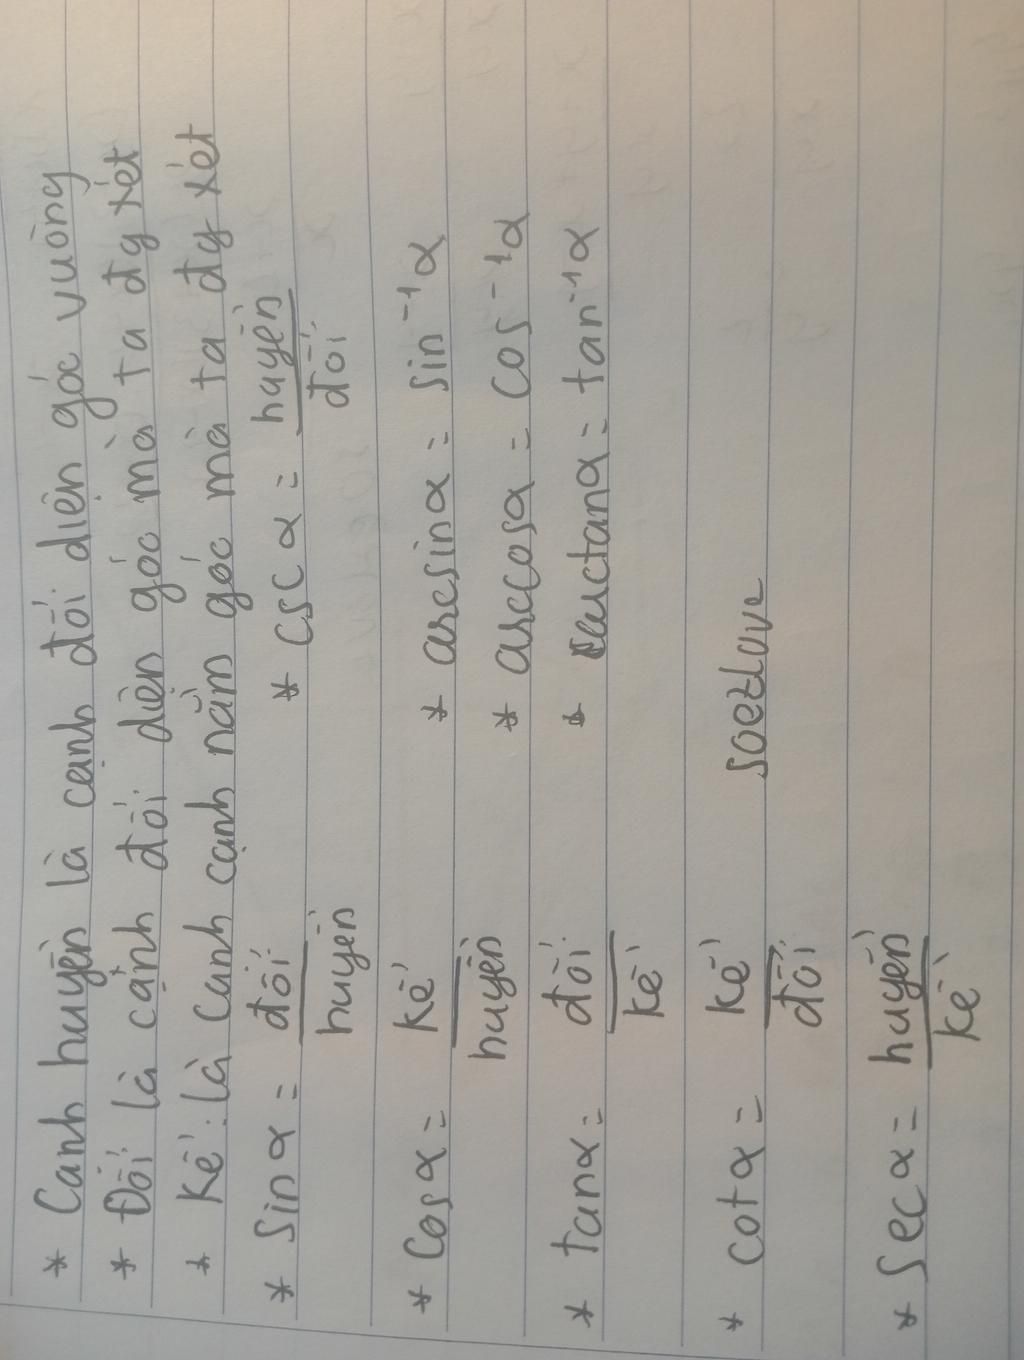 * Cạnh huyền là cạnh đối diện góc vuông
* Đối là cạnh đối diện góc mà ta đg xét
* Kề là cạnh cạnh nằm góc mà ta đg xét
* Sin α = đối / huyền
* csc α = huyền / đối
* Cos α = kề / huyền
* arcsin α = sin⁻¹ α
* arccos α = cos⁻¹ α
* tan α = đối / kề
* arctan α = tan⁻¹ α
* cot α = kề / đối
* Sec α = huyền / kề